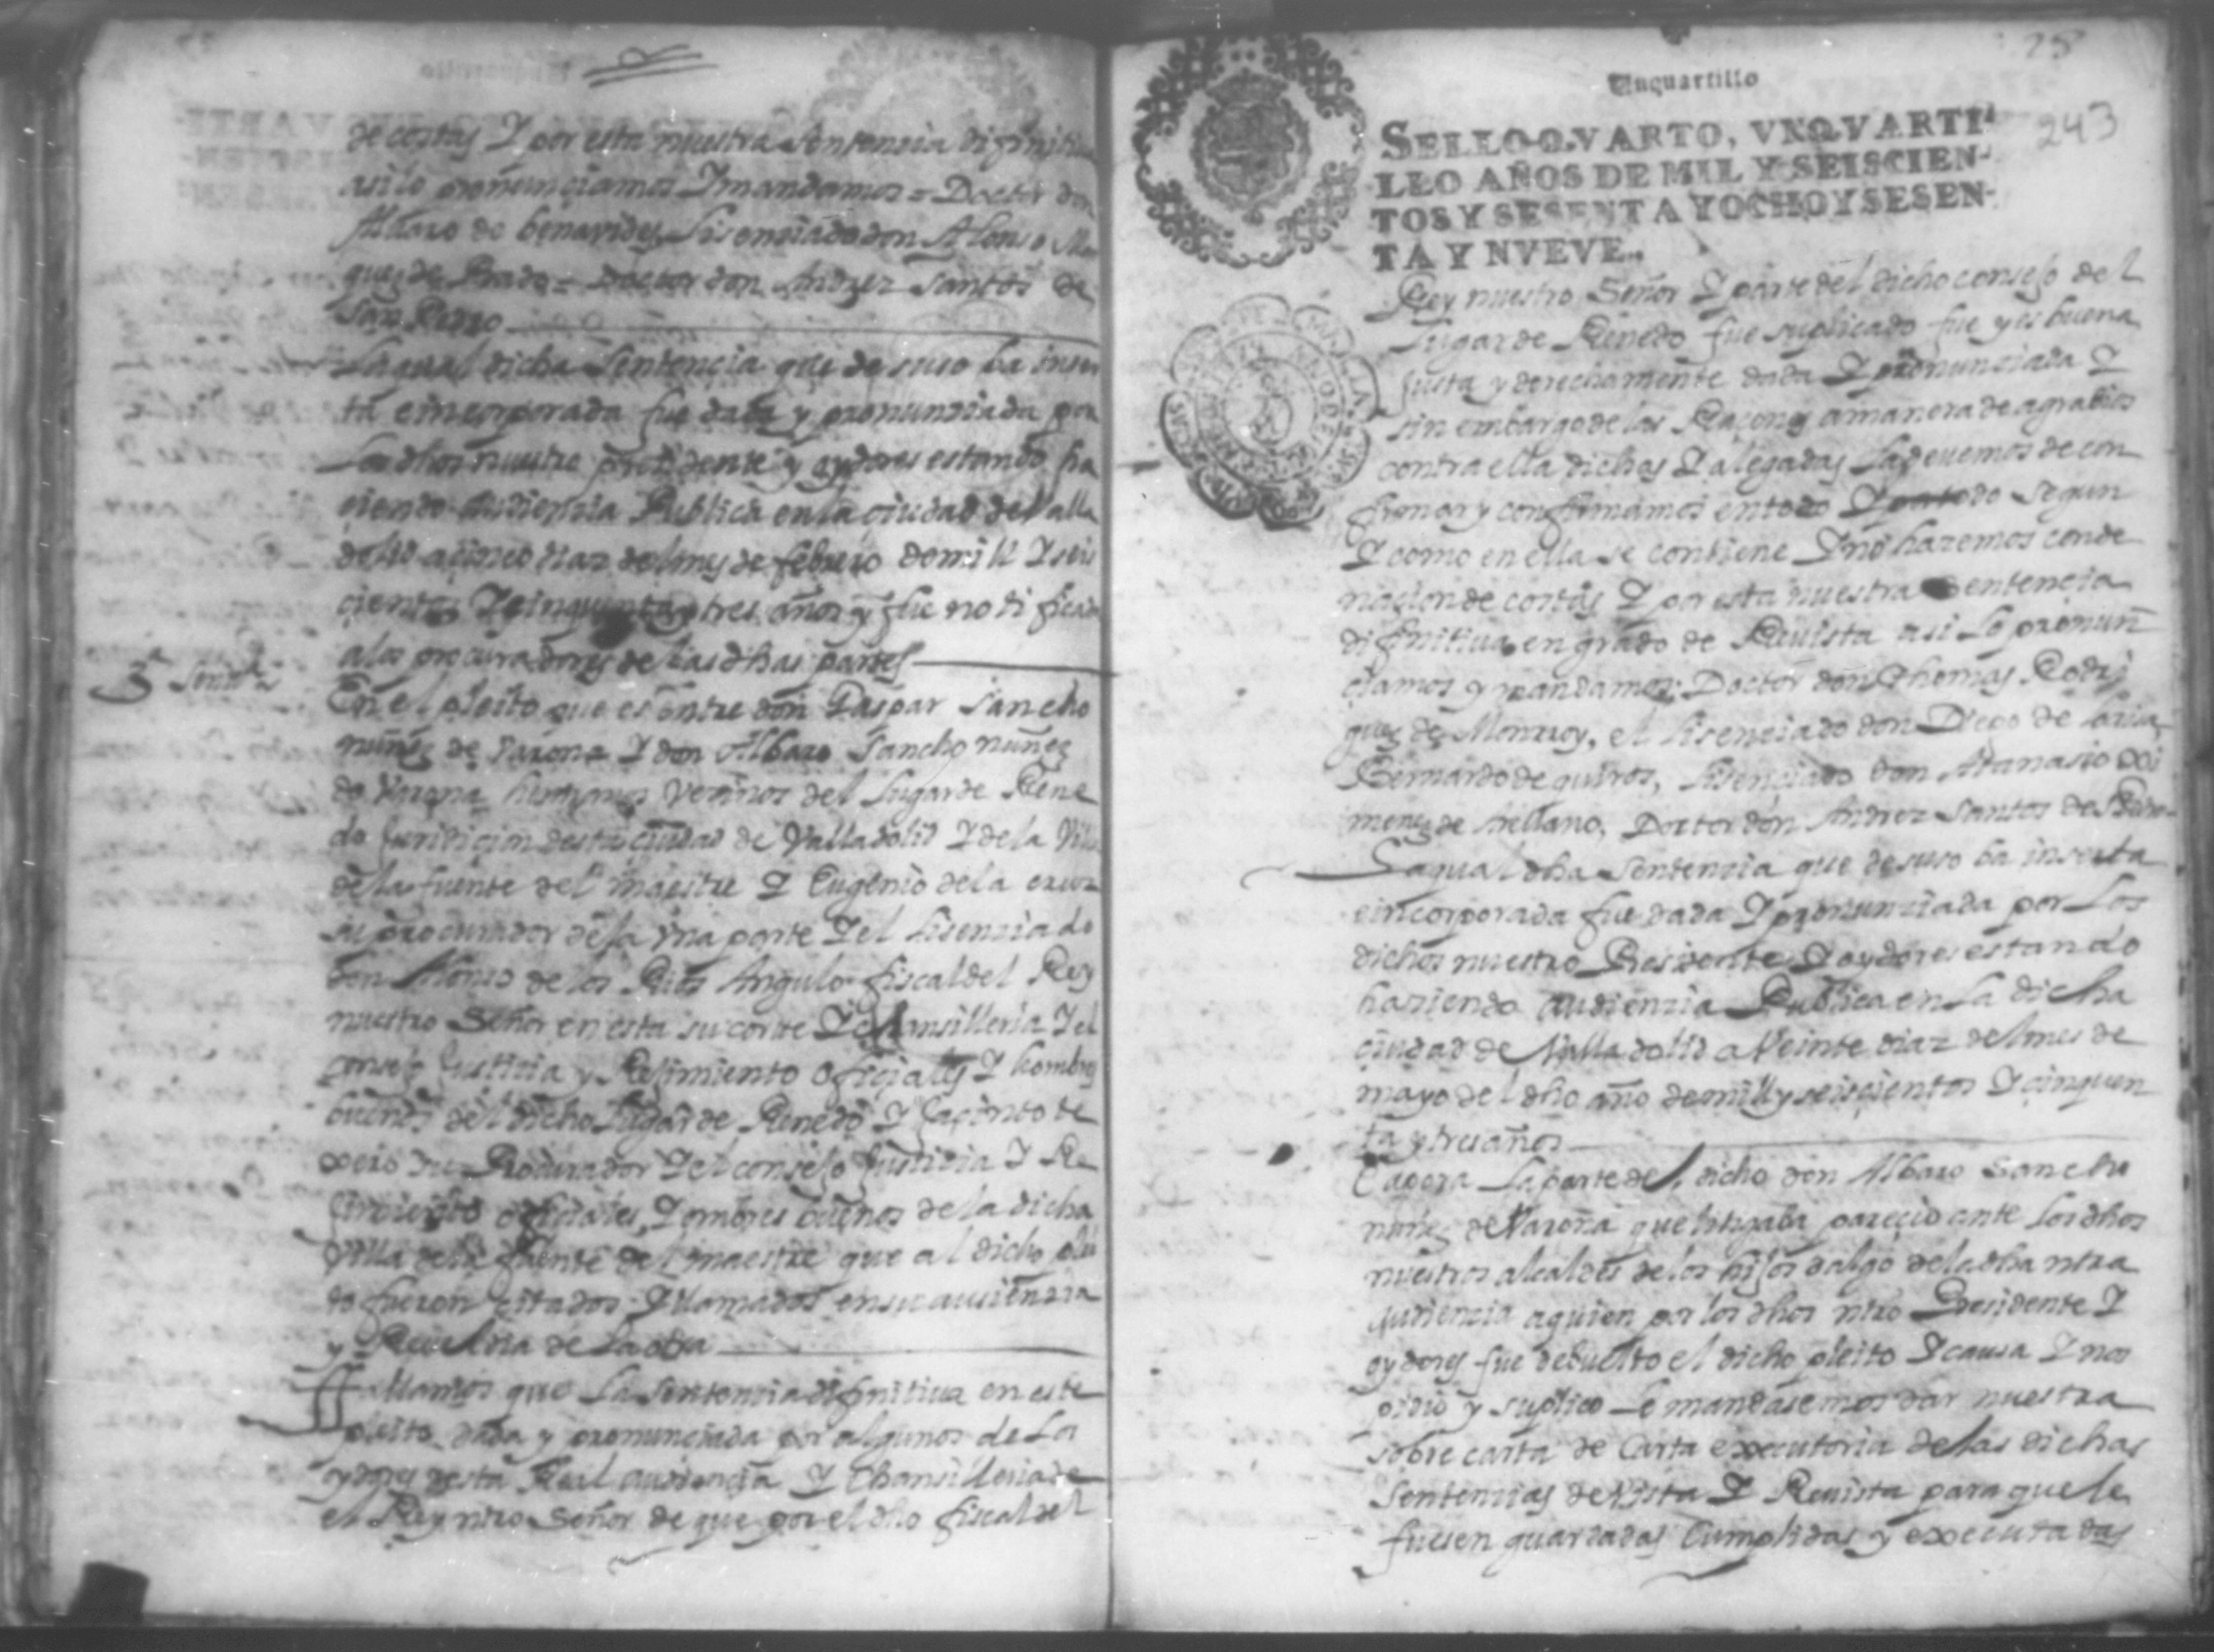 de costas Y por esta nuestra sentencia difinitiua
asi lo pronunciamos Y mandamos = Doctor don
Albaro de benavides, Lisenciado don Alonso Mar
quez de Prado = Doctor don Andrez santos de
San Pedro
La qual dicha Sentencia que de suso ba inser
ta e incorporada fue dada y pronunziada por
Los dhos nuestro presidente y oydores estando ha
ciendo audienzia Publica en la ciudad de Valla
dolid a cinco diaz del mes de febrero de mill Y seis
cientos Y cinquenta y tres años y fue notificada
a los procuradores de las dhas partes
3ª Sentª
En el pleito que es entre don Gaspar Sancho
nuñez de Varona Y don Albaro Sancho nuñez
de Varona hermanos Vezinos del lugar de Rene
do Juridicion desta ciudad de Valladolid Y de la Villa
de la fuente del maestre Y Eugenio de la cruz
su procurador de la vna parte Y el Lisenziado
don Alonso de los Rios Angulo fiscal del Rey
nuestro Señor en esta su corte Y chansilleria Y el
consejo Justizia y Rejimiento oficiales Y hombres
buenos del dicho lugar de Renedo Y Jacinto de
su Procurador Y el consejo Justizia Y Re
oficiales, Y ombres buenos de la dicha
Villa de la fuente del maestre que al dicho plei
to fueron citados Y llamados en su ausienzia
y Reueldia de la otra
Fallamos que La sentenzia difinitiua en este
pleito dada y pronunciada por algunos de Los
oydores desta Real audiencia Y Chansilleria de
el Rey ntro Señor de que por el dho fiscal del
25
243
Unquartillo
SELLO QVARTO, VN QVARTI-
LLO AÑOS DE MIL Y SEISCIEN-
TOS Y SESENTA Y OCHO Y SESEN-
TA Y NVEVE..
Rey nuestro Señor Y parte del dicho consejo del
Lugar de Renedo fue suplicado fue y es buena
Justa y derechamente dada Y pronunziada Y
sin embargo de las Raçones a manera de agrabios
contra ella dichas Y alegadas La deuemos de con
firmar y confirmamos en todo Y por todo segun
Y como en ella se contiene Y no hazemos conde
nacion de costas Y por esta nuestra sentencia
difinitiua en grado de Reuista asi Lo pronun
ciamos y mandamos: Doctor don Thomas Rodri
guez de Monrroy, el lisenciado don Diego de
Bernardo de quiros, Lisenciado don Atanasio xi
menez de Arellano, Doctor don Andrez Santos de S Pedro
La qual dha sentenzia que de suso ba inserta
e incorporada fue dada Y pronunziada por Los
dichos nuestro Presidente Y oydores estando
haziendo Audienzia Publica en La dicha
ciudad de Valladolid a Veinte diaz del mes de
mayo del dho año de mill y seiscientos Y cinquen
ta y tres años
E aora La parte del dicho don Albaro Sancho
nuñez de Varona que litigaba parecio ante Los dhos
nuestros alcaldes de los hijos dalgo de la dha ntra
audienzia a quien por los dhos ntro Presidente Y
oydores fue debuelto el dicho pleito Y causa Y nos
pidio y suplico Le mandasemos dar nuestra
sobre carta de Carta executoria de las dichas
Sentenzias de Vista Y Reuista para que le
fuesen guardadas Cumplidas y executadas